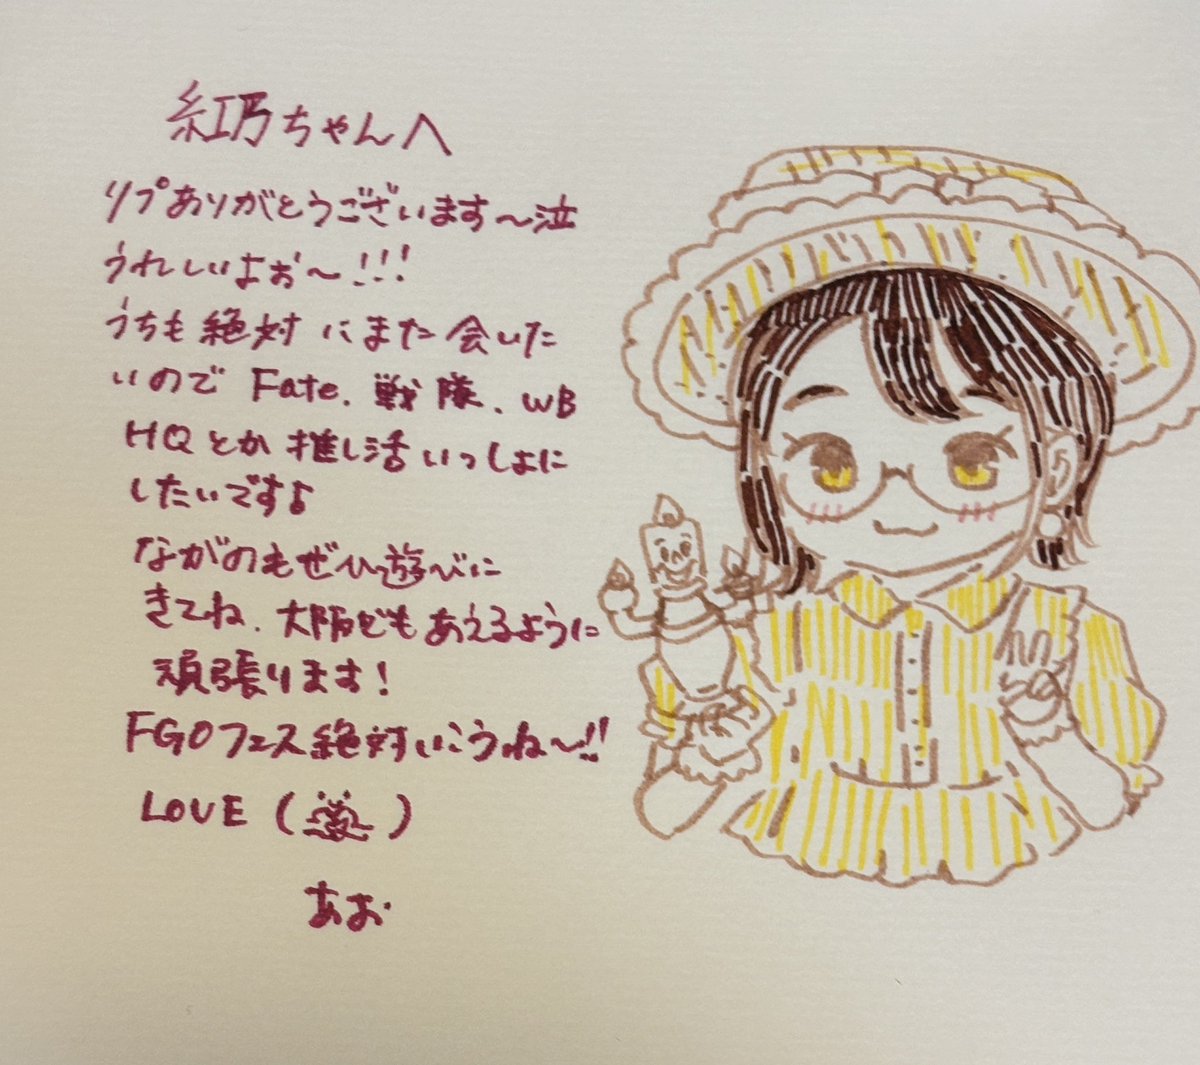 紅乃ちゃんへ
リプありがとうございます〜泣
うれしいよぉ〜!!!
うちも絶対にまた会いた
いのでFate、戦隊、WB
HQとか推し活いっしょに
したいですよ
ながのもぜひ遊びに
きてね、大阪でもあえるように
頑張ります!
FGOフェス絶対いこうね〜!!
LOVE ( )
あお